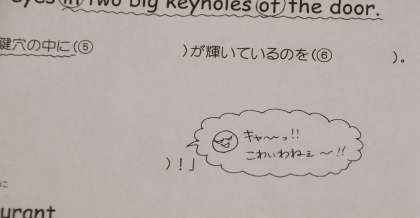 eyes in two big keyholes of the door.
鍵穴の中に(⑤ )が輝いているのを(⑥ )。
キャ〜〜っ!!
こわいわねぇ〜!!
)!」
に
urant